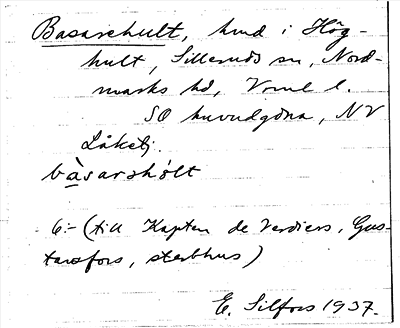 Basarehult, hmd i Hög-
hult, Silleruds sn, Nord-
marks hd, Vrml l.
SO huvudgdna, NV
Låketj.
bàsarshólt
6:- (till Kapten de Verdiers, Gus-
tavsfors, sterbhus)
E. Silfors 1937.